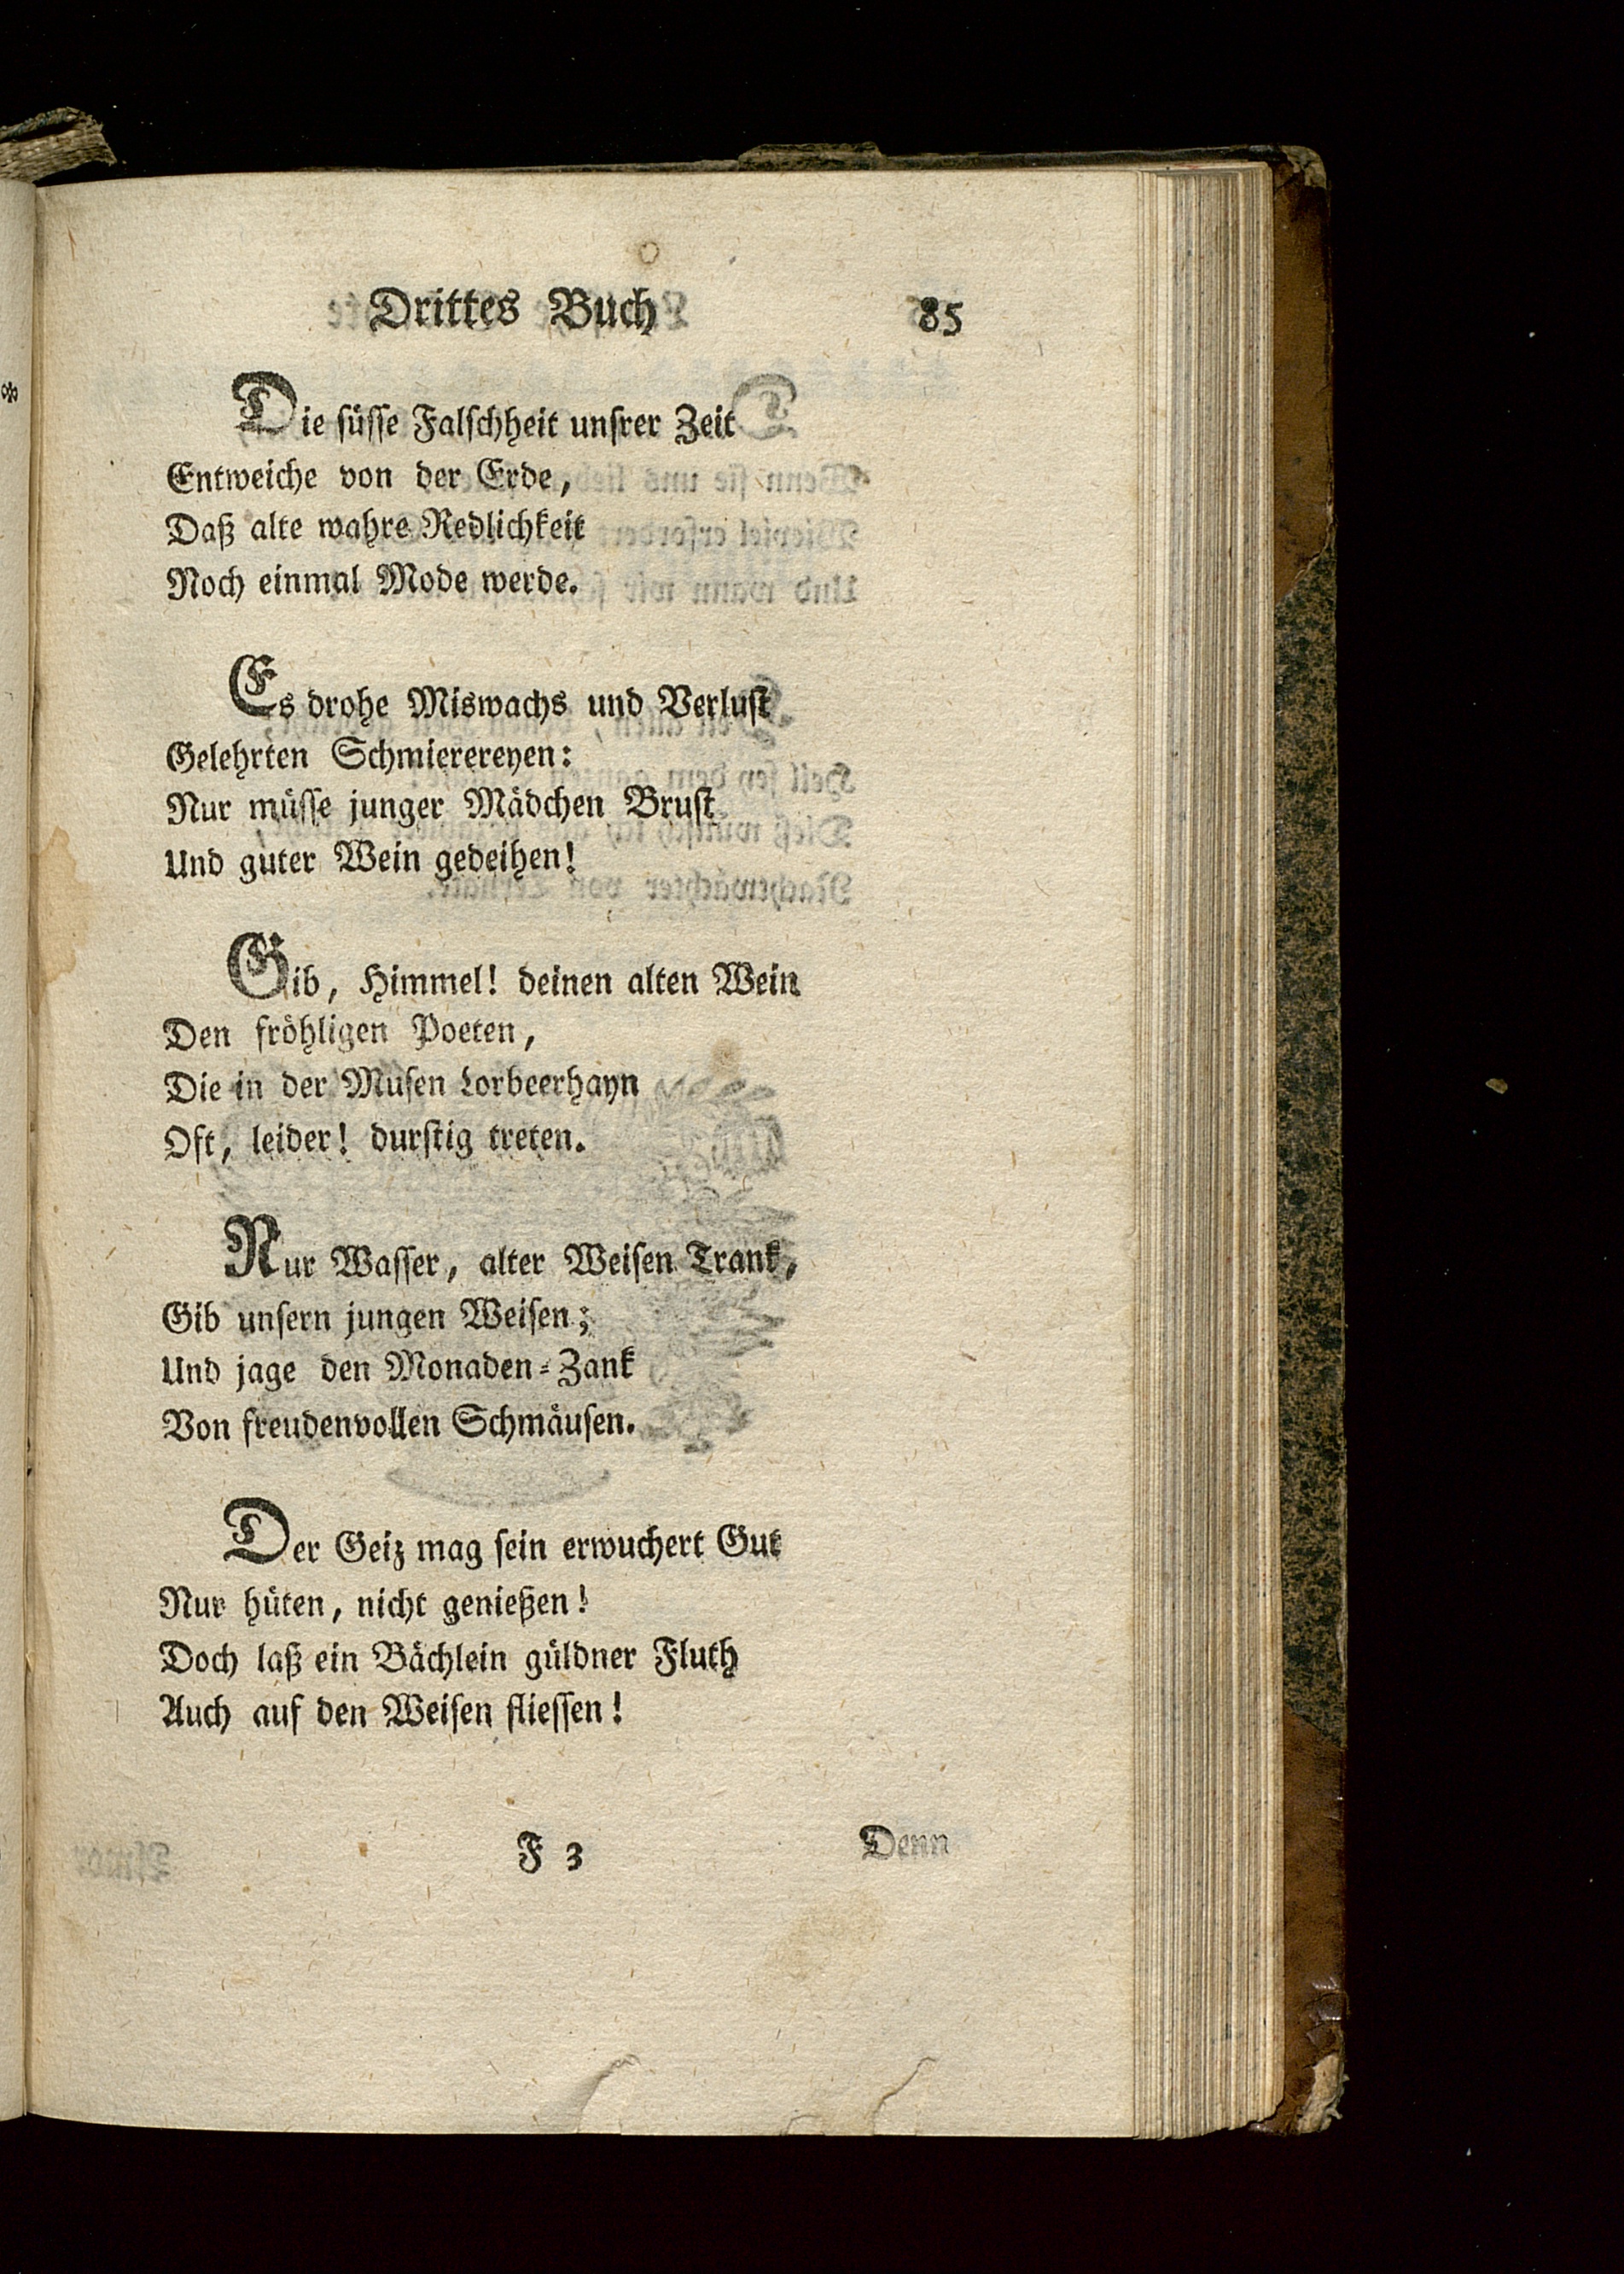 Drittes Buch 85
Die süsse Falschheit unsrer Zeit
Entweiche von der Erde,
Daß alte wahre Redlichkeit
Noch einmal Mode werde.
Es drohe Miswachs und Verlust
Gelehrten Schmierereyen:
Nur müsse junger Mädchen Brust
Und guter Wein gedeihen!
Gib, Himmel! deinen alten Wein
Den fröhligen Poeten,
Die in der Musen Lorbeerhayn
Oft, leider! durstig treten.
Nur Wasser, alter Weisen Trank,
Gib unsern jungen Weisen;
Und jage den Monaden-Zank
Von freudenvollen Schmäusen.
Der Geiz mag sein erwuchert Gut
Nur hüten, nicht genießen!
Doch laß ein Bächlein güldner Fluth
Auch auf den Weisen fliessen!
F 3 Denn